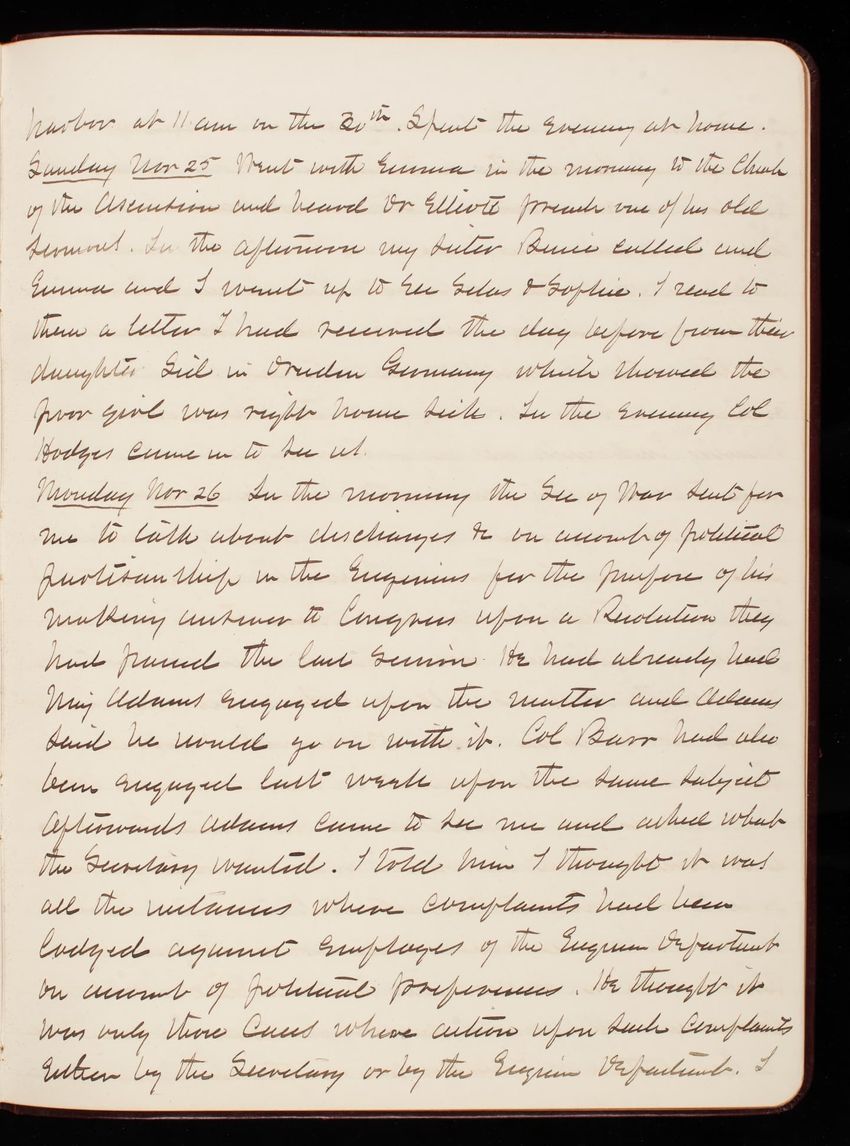 harbor at 11 am on the 30th. Spent the evening at home.
Sunday Nov 25 Went with Emma in the morning to the Church
of the Ascension and heard Dr Elliott preach one of his old
sermons. In the afternoon my sister called and
Emma and I went up to see Silas & Sophie. I read to
them a letter I had received the day before from their
daughter in Dresden Germany which showed the
poor girl was right home sick. In the evening Col
Hodges came in to see us.
Monday Nov 26 In the morning the Sec of War sent for
me to talk about discharges &c on account of political
partisanship in the Engineers for the purpose of his
making answer to Congress upon a Resolution they
had passed the last session. He had already had
Maj Adams engaged upon the matter and Adams
said he would go on with it. Col Barr had also
been engaged last week upon the same subject
Afterwards Adams came to see me and asked what
the Secretary wanted. I told him I thought it was
all the instances where complaints had been
lodged against employes of the Engineer Department
on account of political preferences. He thought it
was only those cases where action upon such complaints
either by the Secretary or by the Engineer Department. I